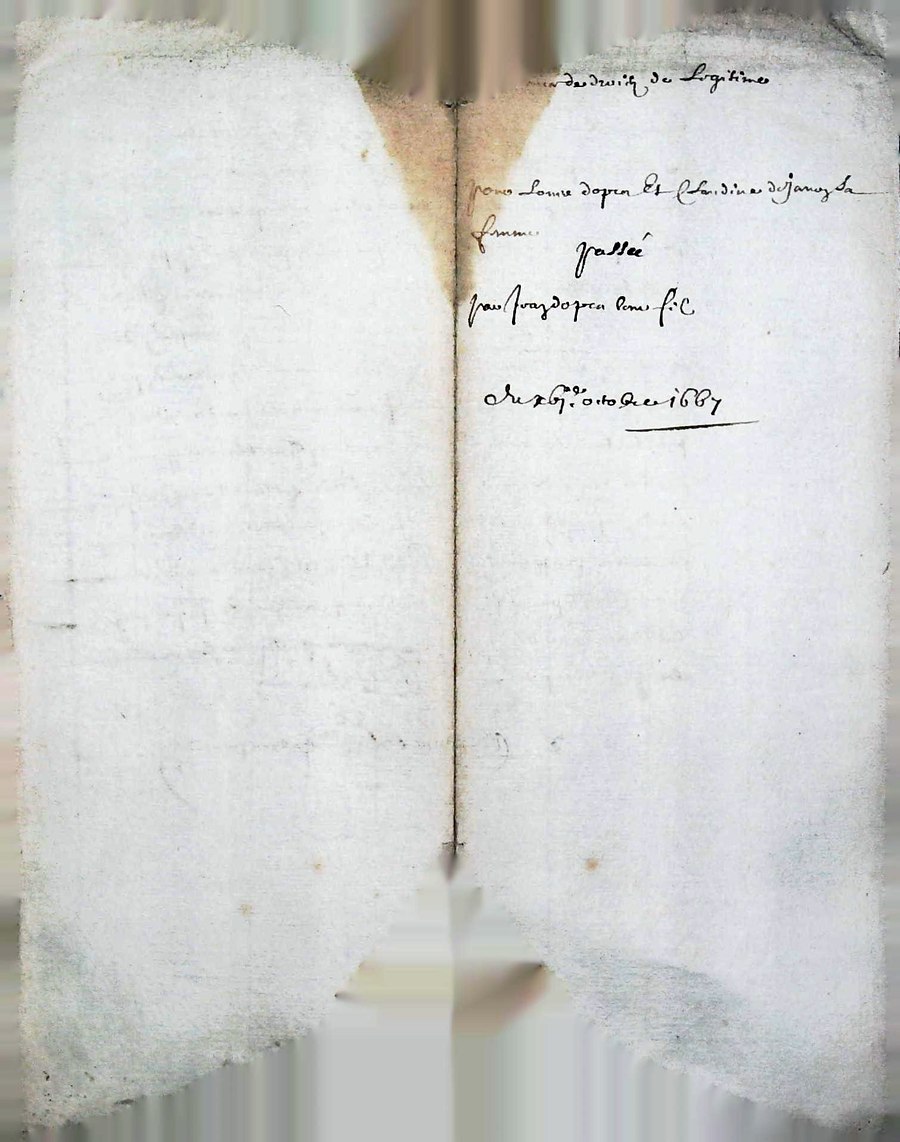 de droict de Legitime
pour Louis dopra Et Claudine dejanoz sa
femme
passée
par franz dopra leur filz
Du octobre 1667